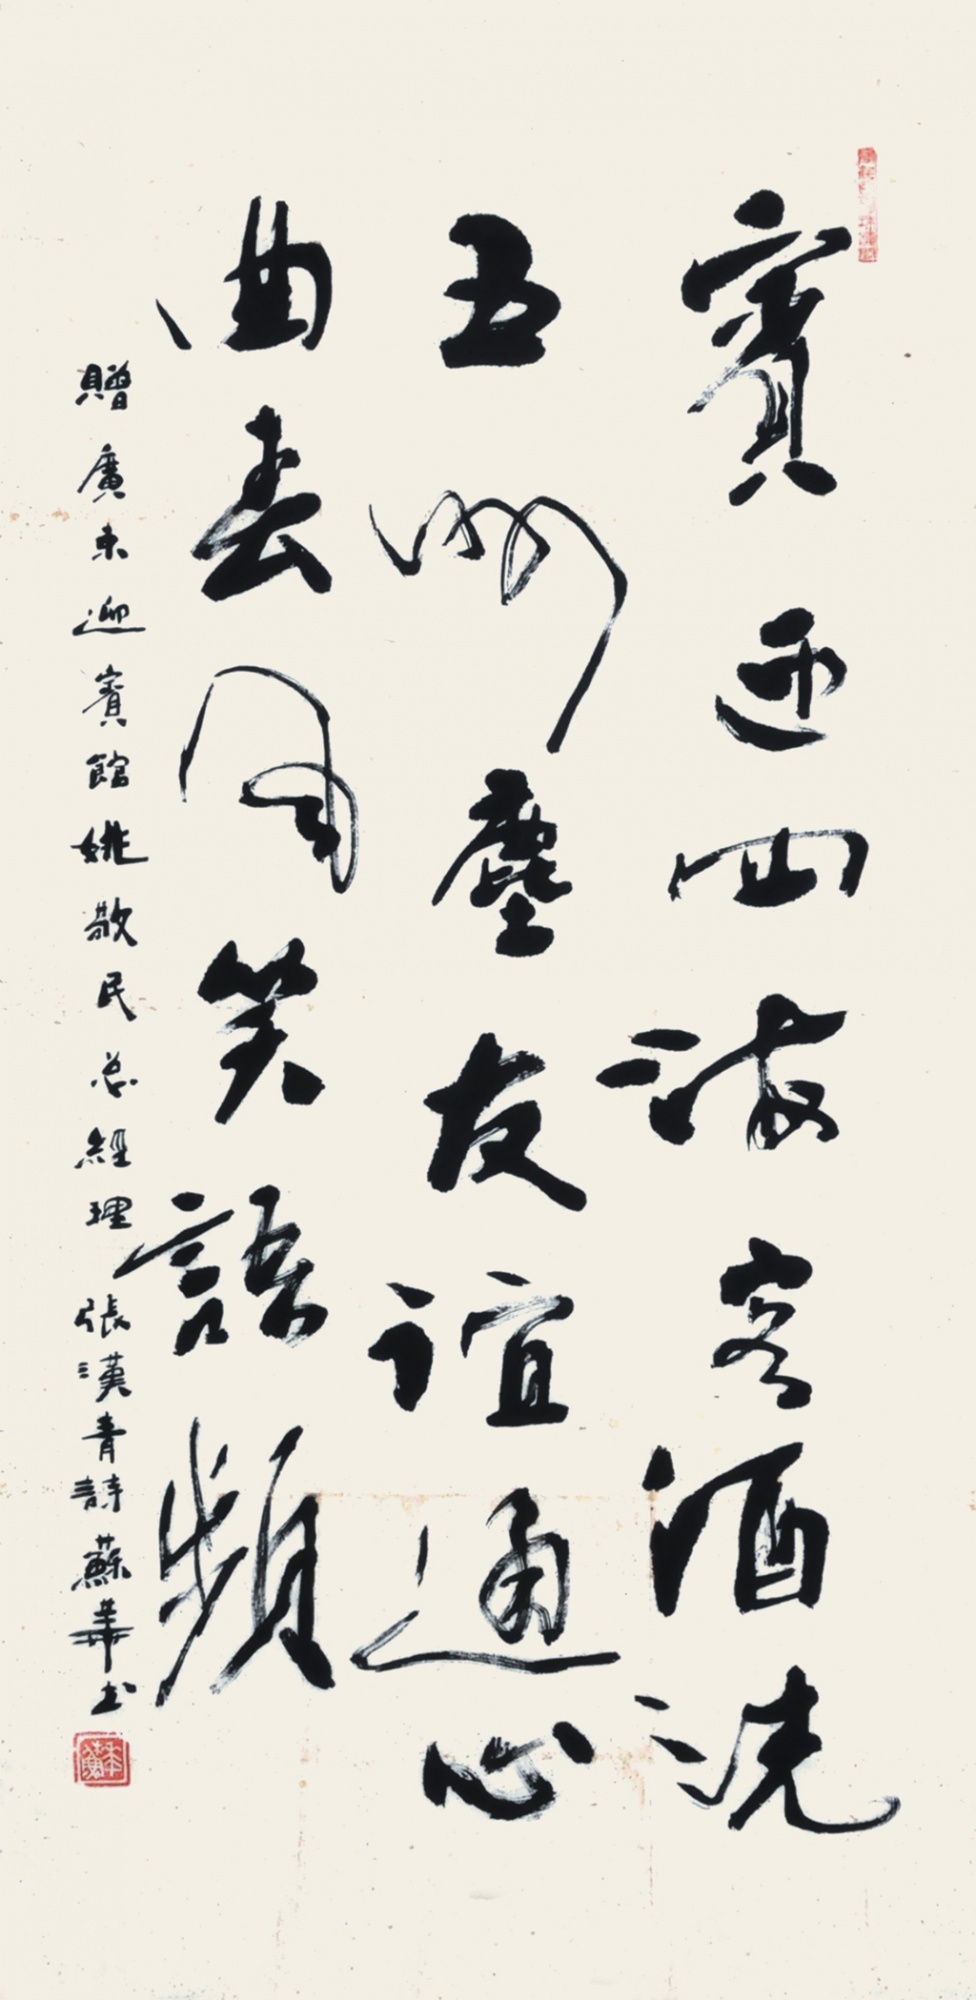 賓迎四海客酒洗
五洲塵友誼通心
曲春風笑語頻
贈廣東迎賓館姚敬民总經理張漢青詩蘇華书